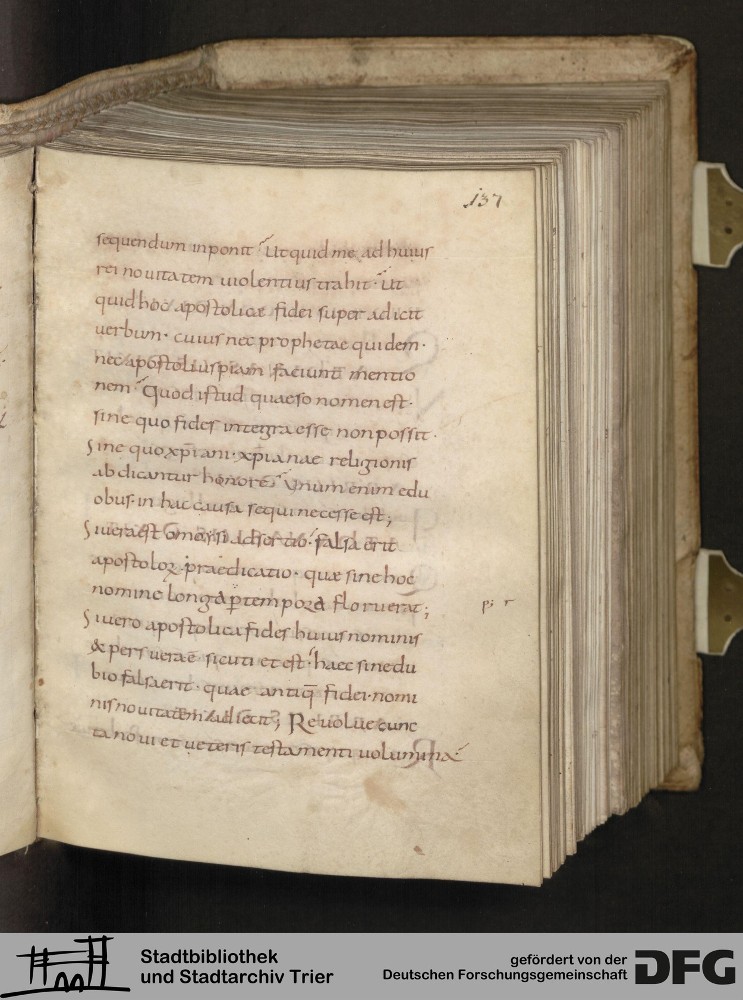 137
sequendum inponit Ut quid me ad huius
rei nouitatem uiolentius trahit · Ut
quid hoc apostolicæ fidei super adicit
uerbum · cuius nec prophetae quidem ·
nec apostoli uspiam faciunt mentio
nem Quod istud quaeso nomen est ·
sine quo fides integra esse non possit ·
Sine quo xp̄iani · xp̄ianae religionis
abdicantur honore · Unum enim edu
obus · in hac causa sequi necesse est;
Si uera est adsertio · falsa erit
apostoloꝝ praedicatio · quæ sine hoc
nomine longa ꝑ tempora floruerat;
Si uero apostolica fides huius nominis
uerae · sicuti et est · haec sine du
bio falsa erit · quae antiq̄ fidei · nomi
nis nouitatem adiecit; Reuolue cunc
ta noui et ueteris testamenti uolumina
Stadtbibliothek
und Stadtarchiv Trier
gefördert von der
Deutschen Forschungsgemeinschaft
DFG